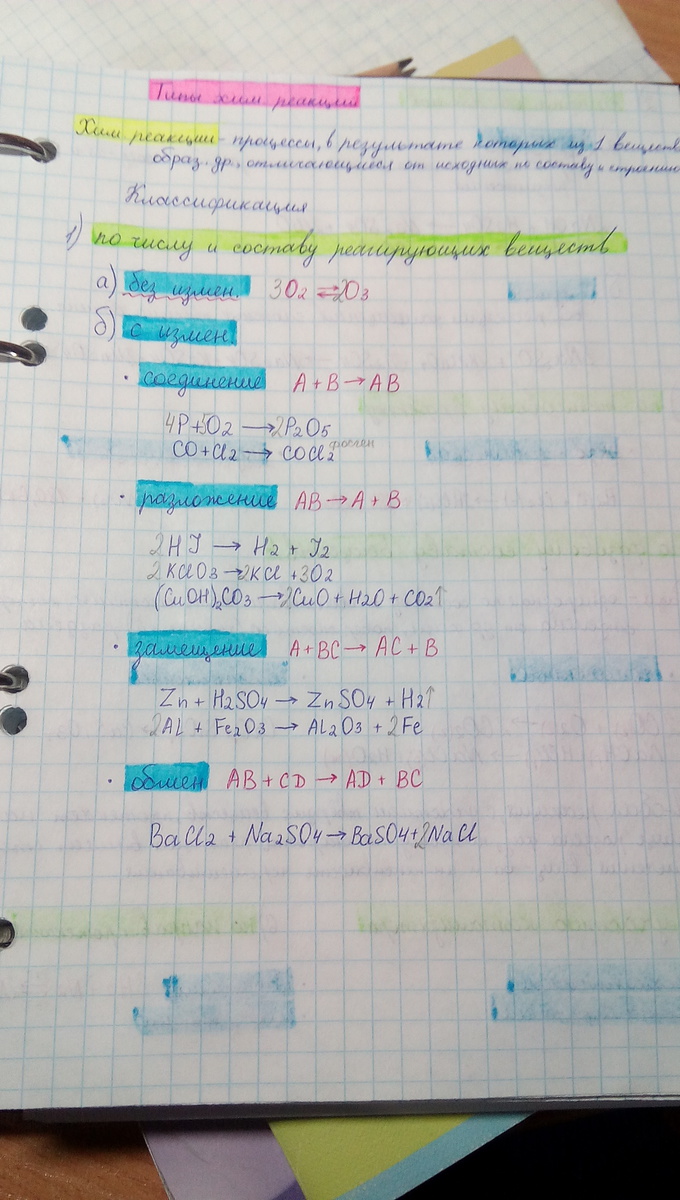 Типы хим. реакций
Хим реакции - процессы, в результате которых из 1 веществ
образ. др., отличающиеся от исходных по составу и строению
Классификация
1) по числу и составу реагирующих веществ
а) без измен. 3O2 ⇄ 2O3
б) с измен.
· соединение A + B → AB
4P + 5O2 → 2P2O5
CO + Cl2 → COCl2 фосген
· разложение AB → A + B
2HJ → H2 + J2
2KClO3 → 2KCl + 3O2
(CuOH)2CO3 → 2CuO + H2O + CO2↑
· замещение A + BC → AC + B
Zn + H2SO4 → ZnSO4 + H2↑
2Al + Fe2O3 → Al2O3 + 2Fe
· обмен AB + CD → AD + BC
BaCl2 + Na2SO4 → BaSO4 + 2NaCl